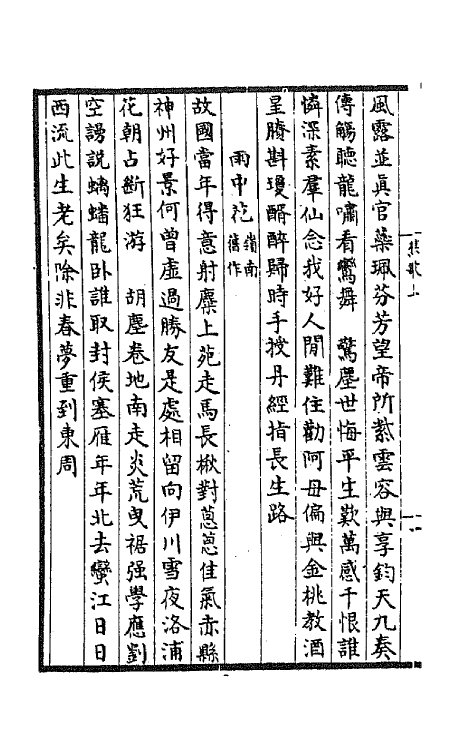 風露並真官蘂珮芬芳望帝所紫雲容與享鈞天九奏
傳觴聽龍嘯看鸞舞　驚塵世悔平生歎萬感千恨誰
憐深素羣仙念我好人閒難住勸阿母偏與金桃教酒
星賸斟瓊醑醉歸時手授丹經指長生路
雨中花嶺南舊作
故國當年得意射麋上苑走馬長楸對蔥蔥佳氣赤縣
神州好景何曾虛過勝友是處相留向伊川雪夜洛浦
花朝占斷狂游　胡塵卷地南走炎荒曳裾强學應劉
空謾說螭蟠龍卧誰取封侯塞雁年年北去蠻江日日
西流此生老矣除非春夢重到東周